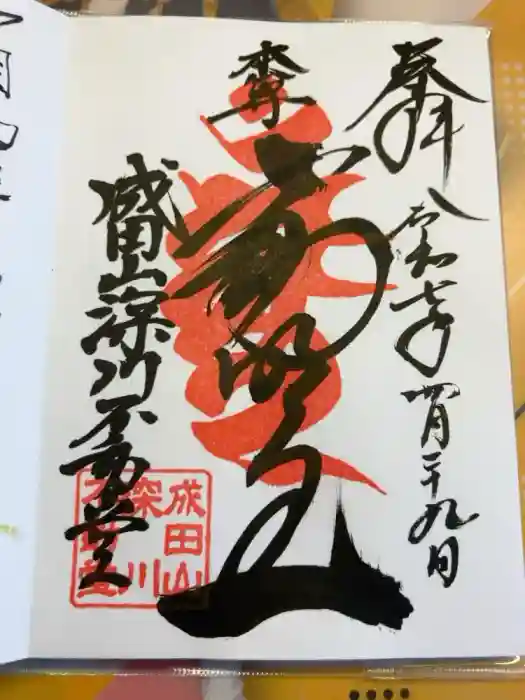 奉拝
令和七年四月二十九日
本尊
不動明王
成田山深川不動堂
成田山
深川
不動堂